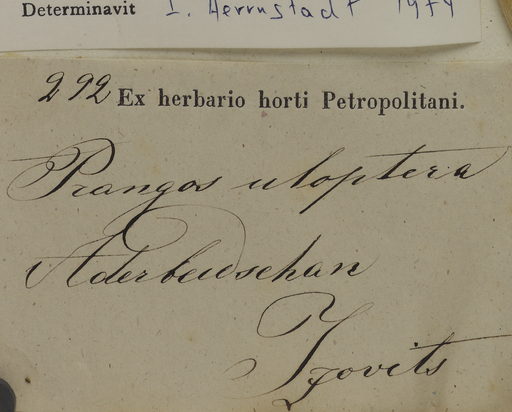 Determinavit I. Herrnstadt 1974
292 Ex herbario horti Petropolitani.
Prangos uloptera
Aderbeidschan
Szovits